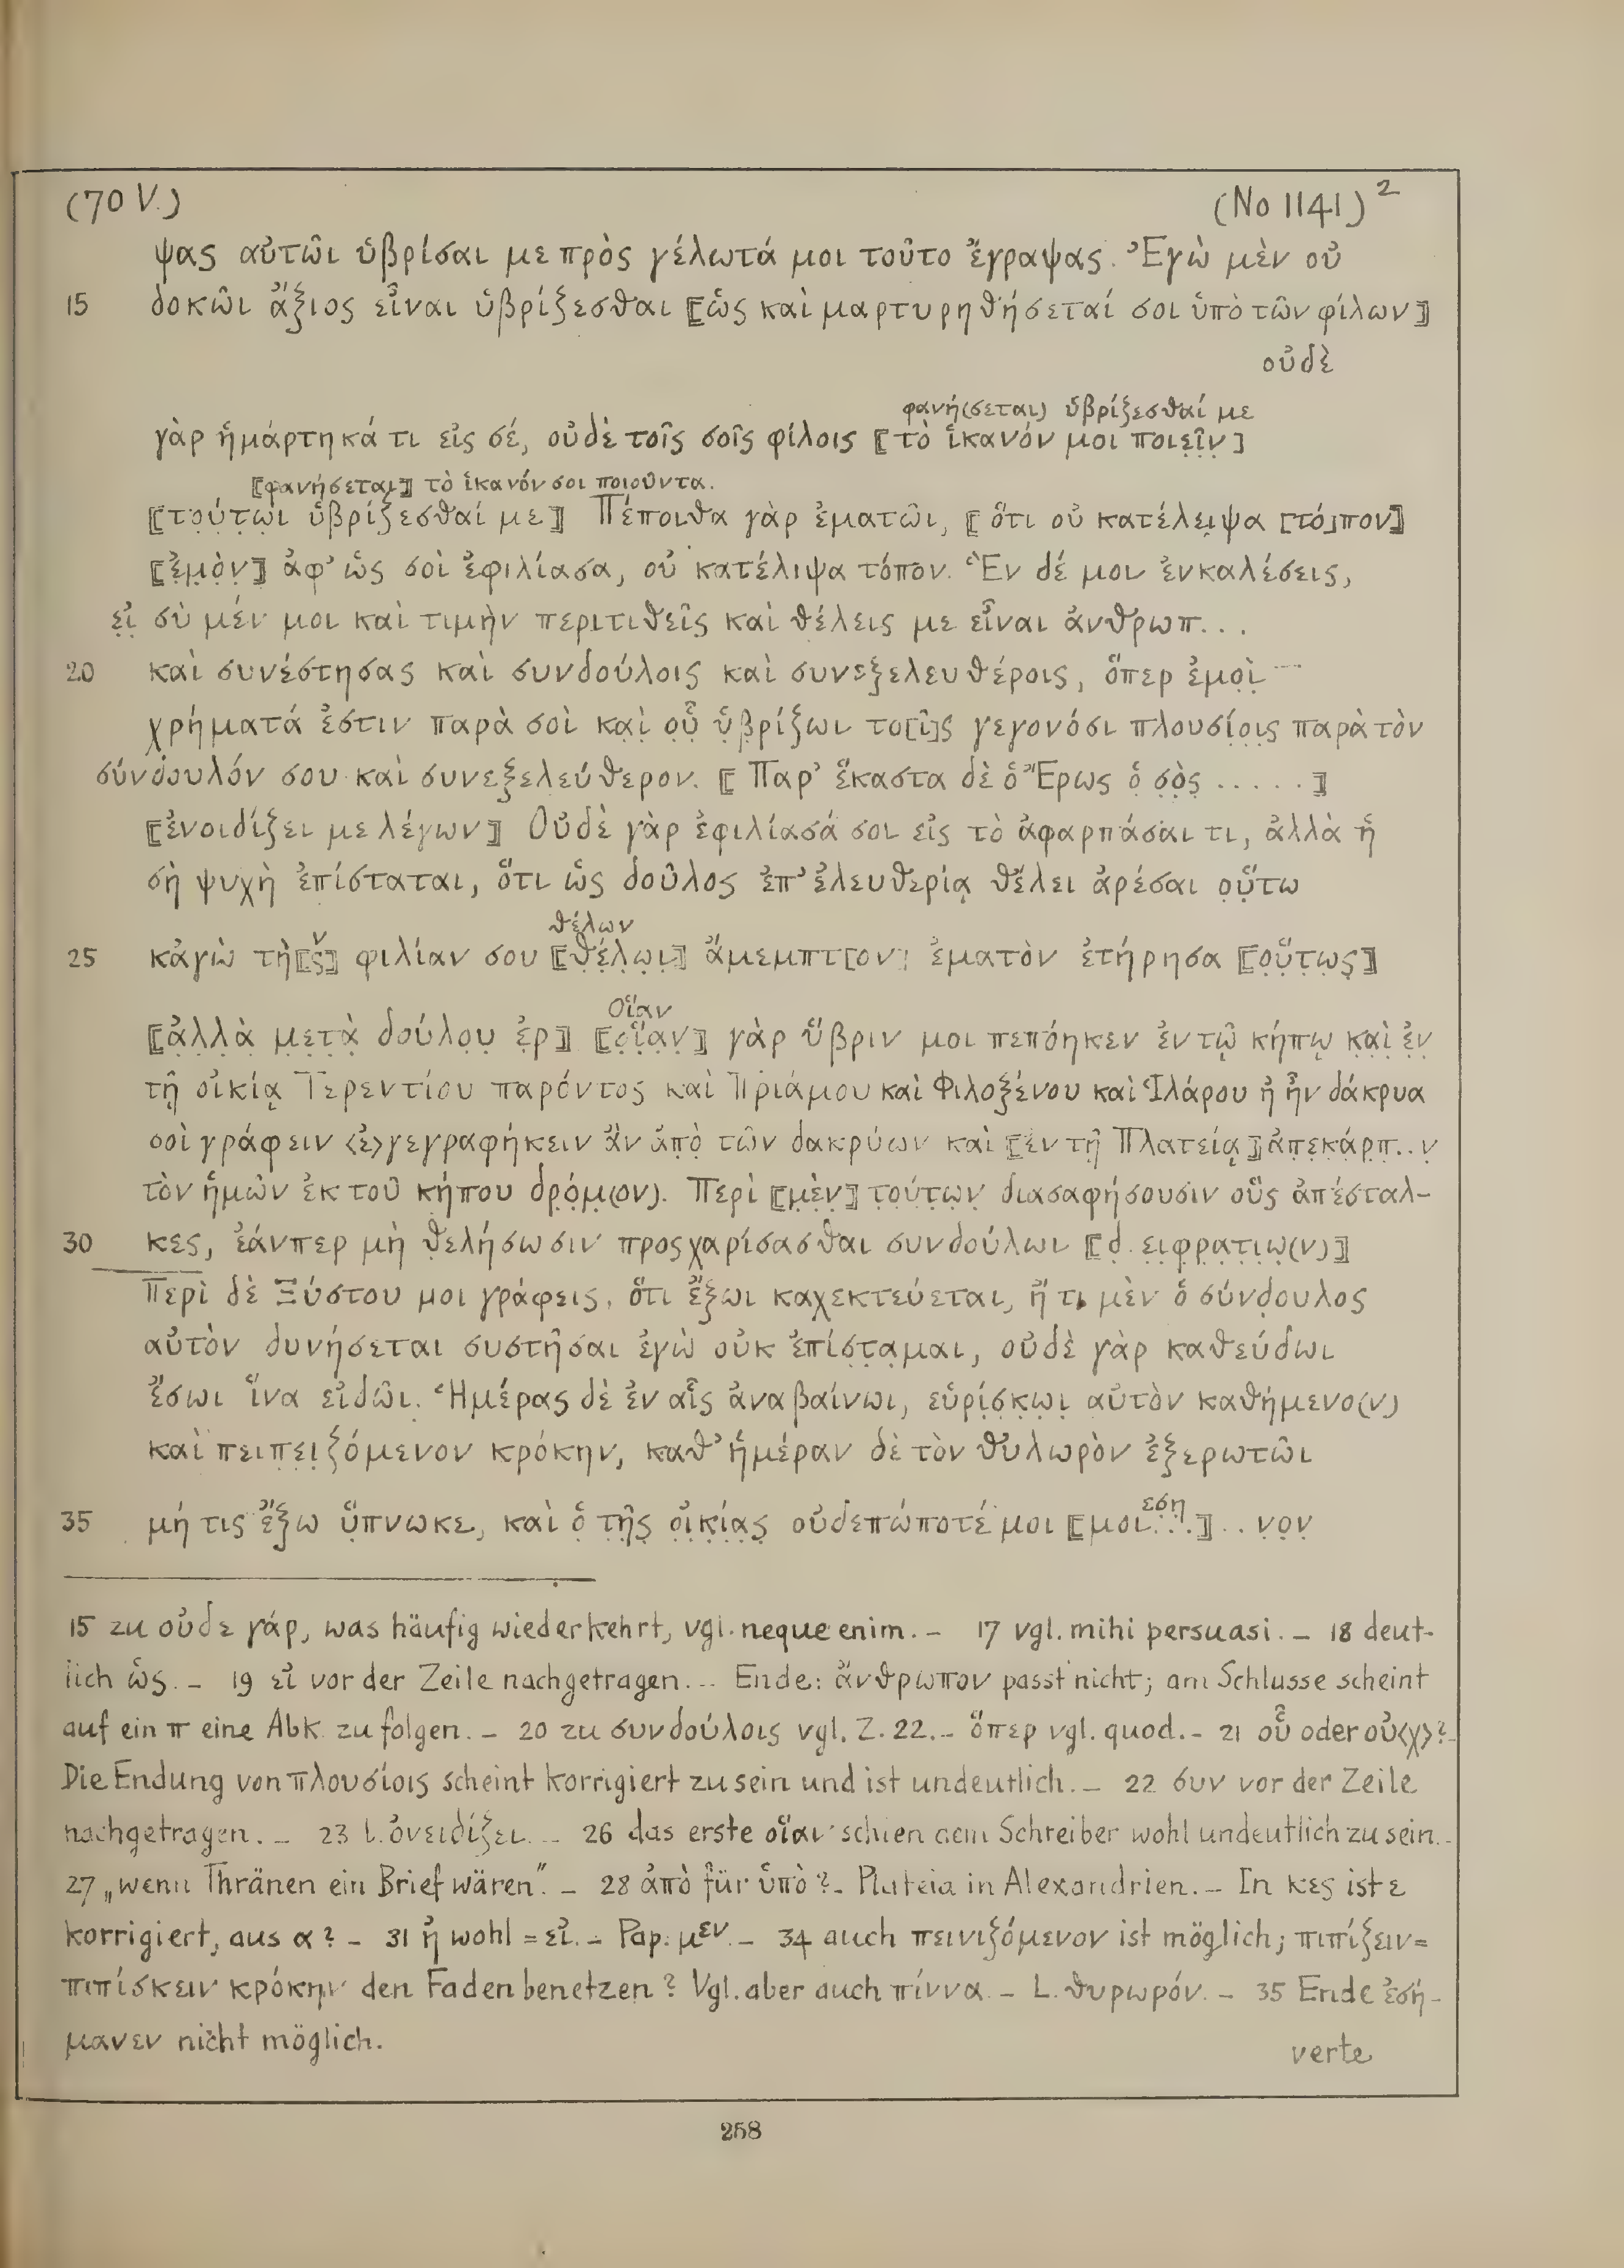 (70 V.) (No 1141)²
ψας αὐτῶι ὑβρίσαι με πρὸς γέλωτά μοι τοῦτο ἔγραψας. Ἐγὼ μὲν οὐ
15 δοκῶι ἄξιος εἶναι ὑβρίζεσθαι ⟦ὡς καὶ μαρτυρηθήσεταί σοι ὑπὸ τῶν φίλων⟧
οὐδὲ
φανή(σεται) ὑβρίζεσθαί με
γὰρ ἡμάρτηκά τι εἰς σέ, οὐδὲ τοῖς σοῖς φίλοις ⟦τὸ ἱκανόν μοι ποιεῖ̣ν̣⟧
⟦φανήσεται⟧ τὸ ἱκανόν σοι ποιοῦντα.
⟦το̣ύ̣τ̣ω̣ι ὑβρίζεσθαί με⟧ Πέποιθα γὰρ ἐματῶι, ⟦ὅτι οὐ κατέλει̣ψα [τό]πον⟧
⟦ἐ̣μ̣ὸ̣ν̣⟧ ἀφ’ ὡς σοὶ ἐφιλίασα, οὐ κατέλιψα τόπον. Ἓν δέ μοι ἐνκαλέσεις,
ε̣ἰ̣ σὺ μέν μοι καὶ τιμὴν περιτιθεῖς καὶ θέλεις με εἶναι ἀνθρωπ...
20 καὶ συνέστησας καὶ συνδούλοις καὶ συνεξελευθέροις, ὅπερ ἐμο̣ὶ̣
χρήματά ἐστιν παρὰ σοὶ κα̣ὶ̣ ο̣ὗ̣ ὑ̣β̣ρίζωι το[ῖ]ς γεγονόσι πλουσί̣ο̣ι̣ς παρὰ τὸν
σύνδουλόν σου καὶ συνεξελεύθερον. ⟦Παρ’ ἕκαστα δὲ ὁ Ἔρως ὁ̣ σ̣ὸ̣ς̣ .....⟧
⟦ἐνοιδίζει με λέγων⟧ Οὐδὲ γὰρ ἐφιλίασά σοι εἰς τὸ ἀφαρπάσαι τι, ἀλλὰ ἡ
σὴ ψυχὴ ἐπίσταται, ὅτι ὡς δοῦλος ἐπ’ ἐλευθερίᾳ θέλει ἀρέσαι ο̣ὕ̣τω
θέλων
25 κἀγὼ τὴ⟦ς̣⟧ν φιλίαν σου ⟦θ̣έ̣λ̣ω̣ι̣⟧ ἄμεμπτ[ον] ἐματὸν ἐτήρησα ⟦ο̣ὕ̣τ̣ω̣ς̣⟧
Οἵαν
⟦ἀ̣λ̣λ̣ὰ̣ μ̣ε̣τ̣ὰ̣ δούλο̣υ̣ ἐ̣ρ̣⟧ ⟦ο̣ἵ̣α̣ν̣⟧ γὰρ ὕβριν μοι πεπόηκεν ἐν τῷ κήπῳ κ̣α̣ὶ̣ ἐ̣ν̣
τῇ οἰκίᾳ Τερεντίου παρόντος καὶ Πριάμου καὶ Φιλοξένου καὶ Ἱλάρου ἢ ἦν δάκρυα
σοὶ γράφειν ⟨ἐ⟩γεγραφήκειν ἂν ἀ̣π̣ὸ̣ τῶν δακρύων καὶ ⟦ἐν τῇ Πλατείᾳ⟧ ἀ̣π̣ε̣κ̣ά̣ρ̣π̣..ν̣
τὸν ἡμῶν ἐκ τοῦ κ̣ή̣που δρ̣ό̣μ̣(ον). Περὶ ⟦μ̣ὲ̣ν̣⟧ τ̣ο̣ύ̣τ̣ω̣ν̣ διασαφήσουσιν οὓς ἀπέσταλ-
30 κες, ἐάνπερ μὴ θ̣ελήσωσιν προσχαρίσασθαι συνδούλωι ⟦δ̣. ε̣ι̣φ̣ρ̣α̣τ̣ι̣ω̣(ν)⟧
Περὶ δὲ Ξύστου μοι γράφεις, ὅτι ἔξωι καχεκτεύεται, ἤ τι μὲν ὁ σύνδ̣ουλος
αὐτὸν δυνήσεται συστῆσαι ἐγὼ οὐκ ἐπίσ̣τ̣α̣μαι, οὐδὲ γὰρ καθεύδωι
ἔσωι ἵνα εἰδῶι. Ἡμέρας δὲ ἐν αἷς ἀναβαίνωι, εὑρί̣σ̣κ̣ω̣ι̣ αὐτὸν καθήμενο(ν)
καὶ πειπ̣ε̣ι̣ζόμενον κρόκην, καθ’ ἡμέραν δὲ τὸν θυλωρὸν ἐξερωτῶι
εση
35 μή τις ἔξω ὕ̣πνωκε, καὶ ὁ̣ τ̣ῆ̣ς̣ ο̣ἰ̣κ̣ί̣α̣ς̣ οὐδεπώποτέ μοι ⟦μοι...⟧..ν̣ο̣ν̣
15 zu οὐδε γάρ, was häufig wiederkehrt, vgl. neque enim. – 17 vgl. mihi persuasi. – 18 deut-
lich ὡς. – 19 εἰ vor der Zeile nachgetragen. – Ende: ἄνθρωπον passt nicht; am Schlusse scheint
auf ein π eine Abk. zu folgen. – 20 zu συνδούλοις vgl. Z. 22. – ὅπερ vgl. quod. – 21 οὗ oder οὐ⟨χ⟩? –
Die Endung von πλουσίοις scheint korrigiert zu sein und ist undeutlich. – 22 συν vor der Zeile
nachgetragen. – 23 l. ὀνειδίζει. – 26 das erste οἵαν schien dem Schreiber wohl undeutlich zu sein. –
27 „wenn Thränen ein Brief wären”. – 28 ἀπὸ für ὑπὸ? – Plateia in Alexandrien. – In κες ist ε
korrigiert, aus α? – 31 ἤ wohl = εἰ. – Pap. μεν. – 34 auch πεινιζόμενον ist möglich; πιπίζειν =
πιπίσκειν κρόκην den Faden benetzen? Vgl. aber auch πίννα. – L. θυρωρόν. – 35 Ende ἐσή-
μανεν nicht möglich.
verte
258